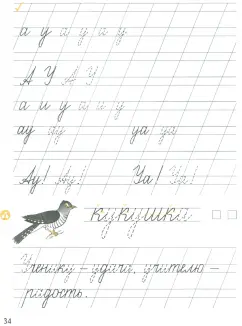 а у а у а у
А У А У
а и у а и у
ау ау уа уа
Ау! Ау! Уа! Уа!
кукушка
Ученику – удача, учителю –
радость.
34